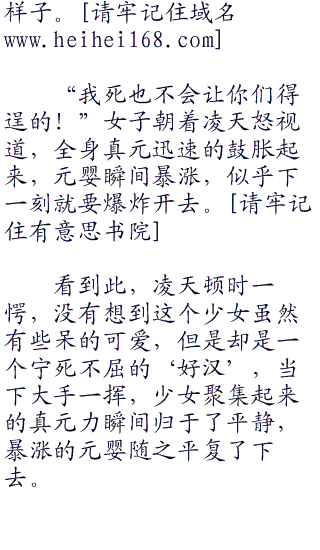 样子。[请牢记住域名
www.heihei168.com]
“我死也不会让你们得
逞的！”女子朝着凌天怒视
道，全身真元迅速的鼓胀起
来，元婴瞬间暴涨，似乎下
一刻就要爆炸开去。[请牢记
住有意思书院]
看到此，凌天顿时一
愕，没有想到这个少女虽然
有些呆的可爱，但是却是一
个宁死不屈的‘好汉’，当
下大手一挥，少女聚集起来
的真元力瞬间归于了平静，
暴涨的元婴随之平复了下
去。